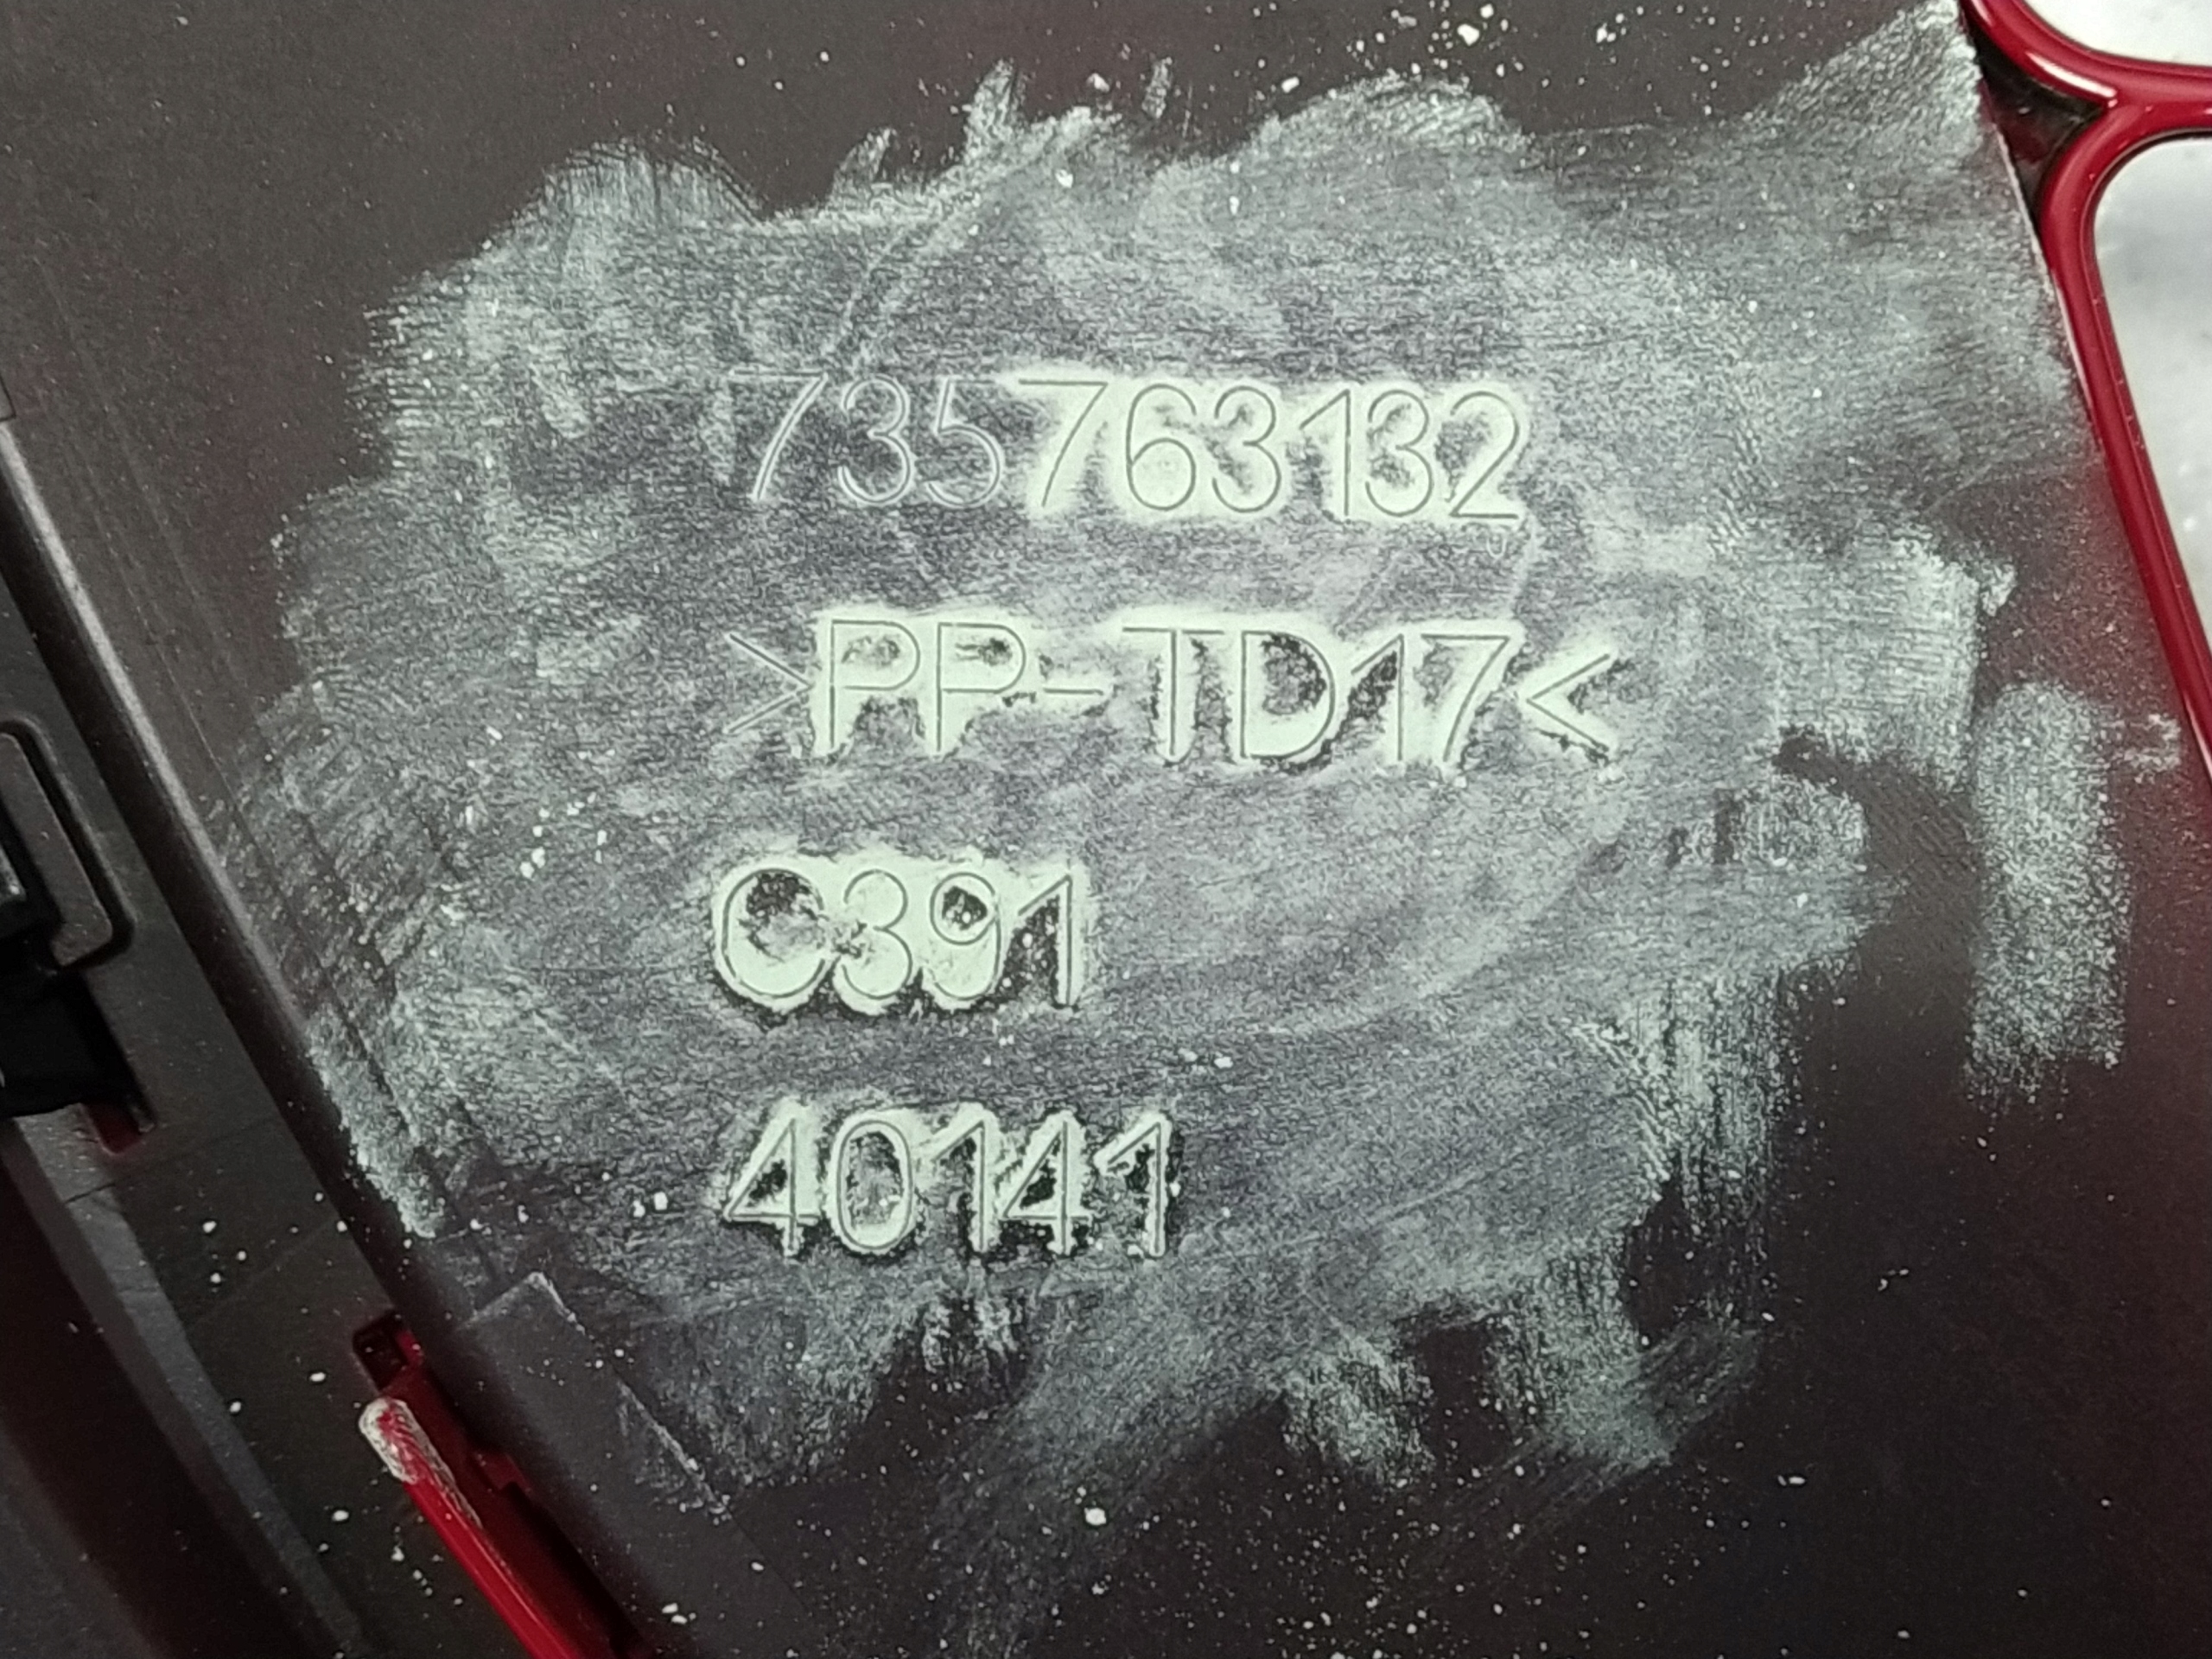 735763132
>PP-TD17<
C391
40141